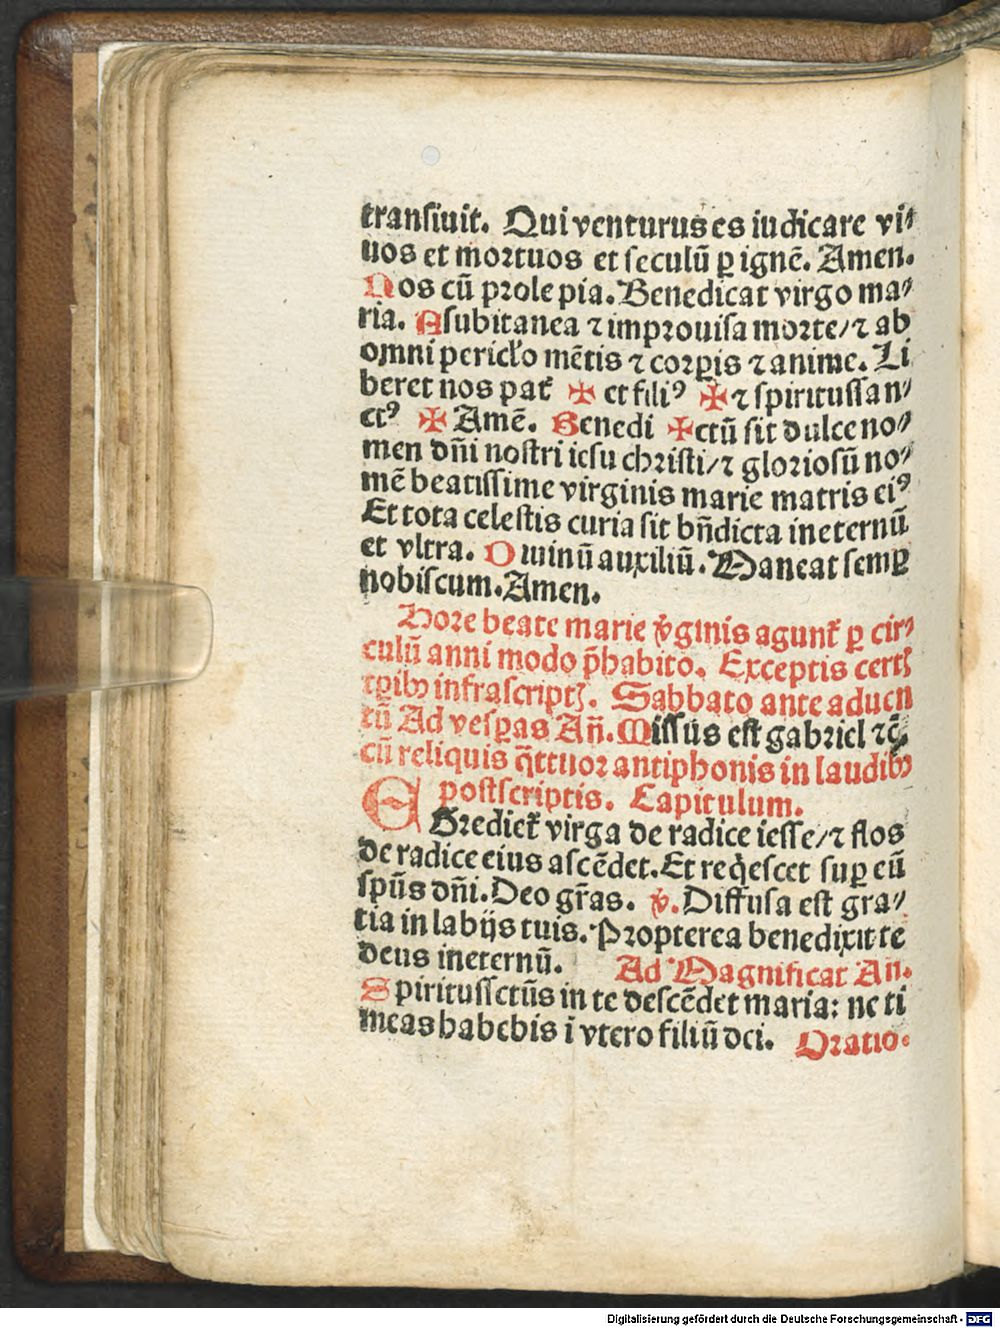 tranſiuit. Qui venturus es iudicare vi⸗
uos et moꝛtuos et ſeculū ꝑ ignē. Amen.
Nos cū pꝛole pia. Benedicat virgo ma⸗
ria. Aſubitanea ⁊ impꝛouiſa moꝛte/⁊ ab
omni pericl̓o mētis ⁊ coꝛꝑis ⁊ anime. Li
beret nos pat᷑ ✠ et filiꝰ ✠ ⁊ ſpirituſſan⸗
ctꝰ ✠ Amē. Benedi ✠ctū ſit dulce no⸗
men dn̄i noſtri ieſu chꝛiſti/⁊ gloꝛioſū no⸗
mē beatiſſime virginis marie matris eiꝰ
Et tota celeſtis curia ſit bn̄dicta ineternū
et vltra. Diuinū auxiliū. Maneat ſemꝑ
nobiſcum. Amen.
Hoꝛe beate marie v̓ginis agunt᷑ ꝑ cir⸗
culū anni modo p̄habito. Exceptis certꝭ
tꝑibꝫ infraſcriptꝭ. Sabbato ante aduen
tū Ad veſꝑas An̄. Miſſus eſt gabriel ⁊c̄.
cū reliquis q̄ttuoꝛ antiphonis in laudibꝫ
poſtſcriptis. Capitulum.
EGꝛediet᷑ virga de radice ieſſe/⁊ flos
de radice eius aſcēdet. Et reqͥeſcet ſuꝑ eū
ſpūs dn̄i. Deo gr̄as. v̓. Diffuſa eſt gra⸗
tia in labijs tuis. Pꝛopterea benedixit te
deus ineternū. Ad Magnificat An.
Spirituſſctūs in te deſcēdet maria: ne ti
meas habebis ī vtero filiū dei. Oꝛatio.
Digitalisierung gefördert durch die Deutsche Forschungsgemeinschaft - DFG